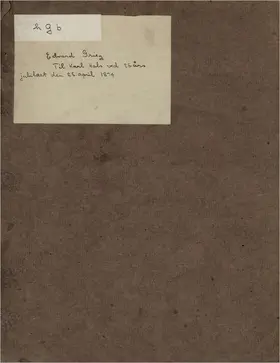 h g b
Edvard Grieg
Til Karl Hals ved 25 års
jubilæet den 25 april